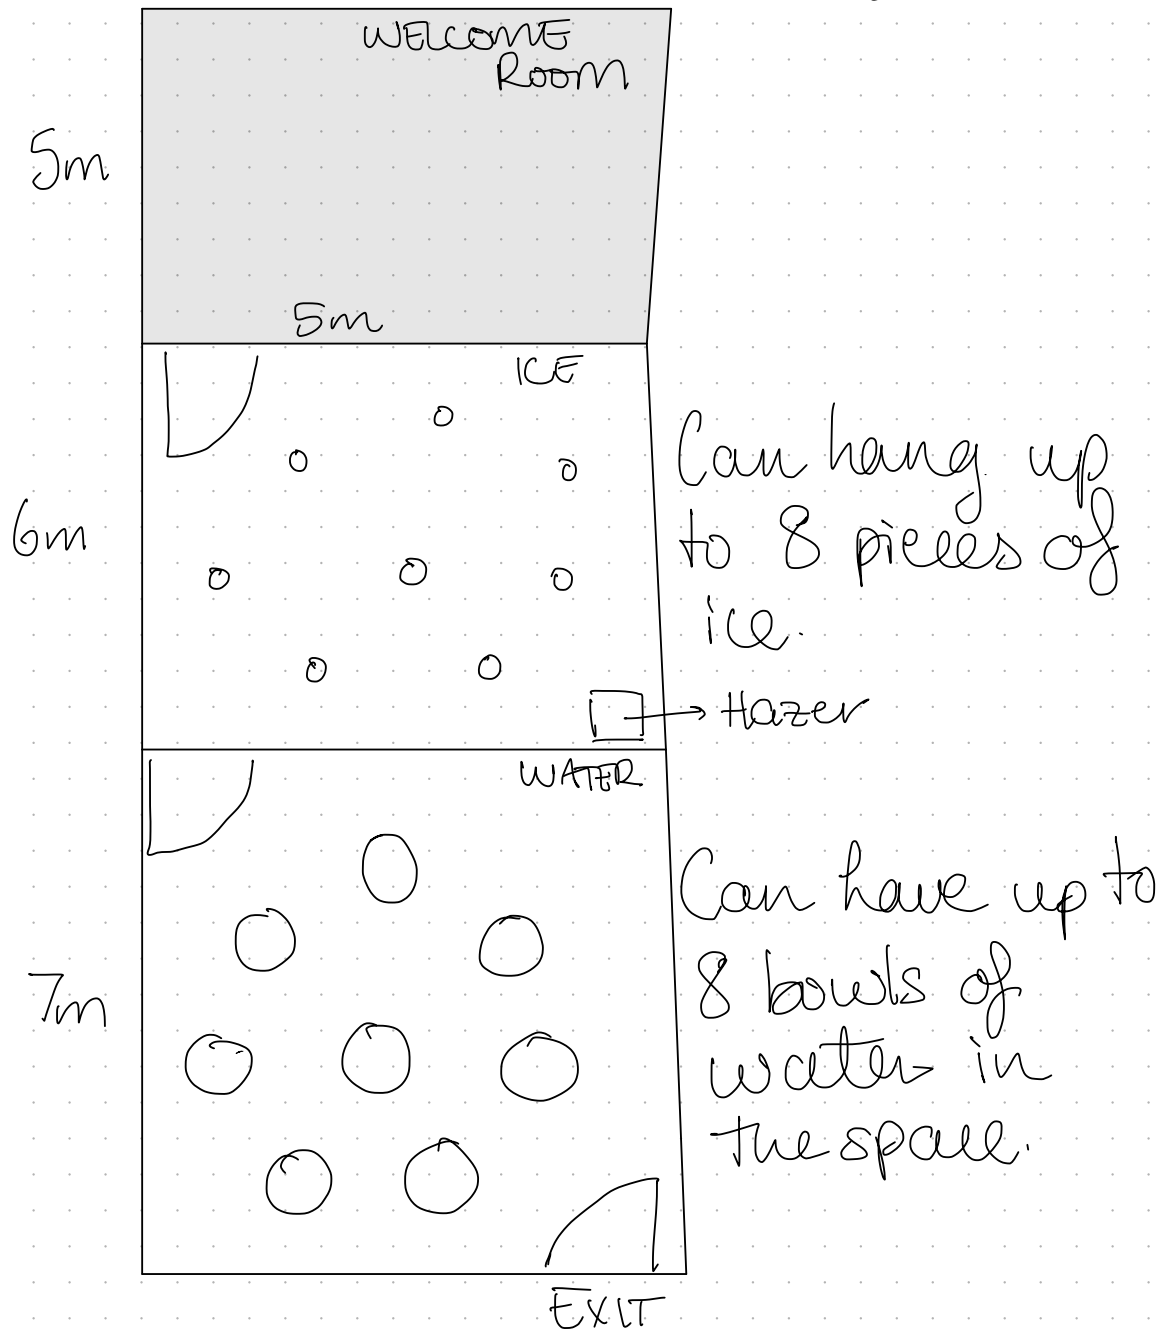 WELCOME
ROOM
5m
5m
ICE
Can hang up
to 8 pieces of
ice.
6m
Hazer
WATER
Can have up to
8 bowls of
water in
the space.
7m
EXIT